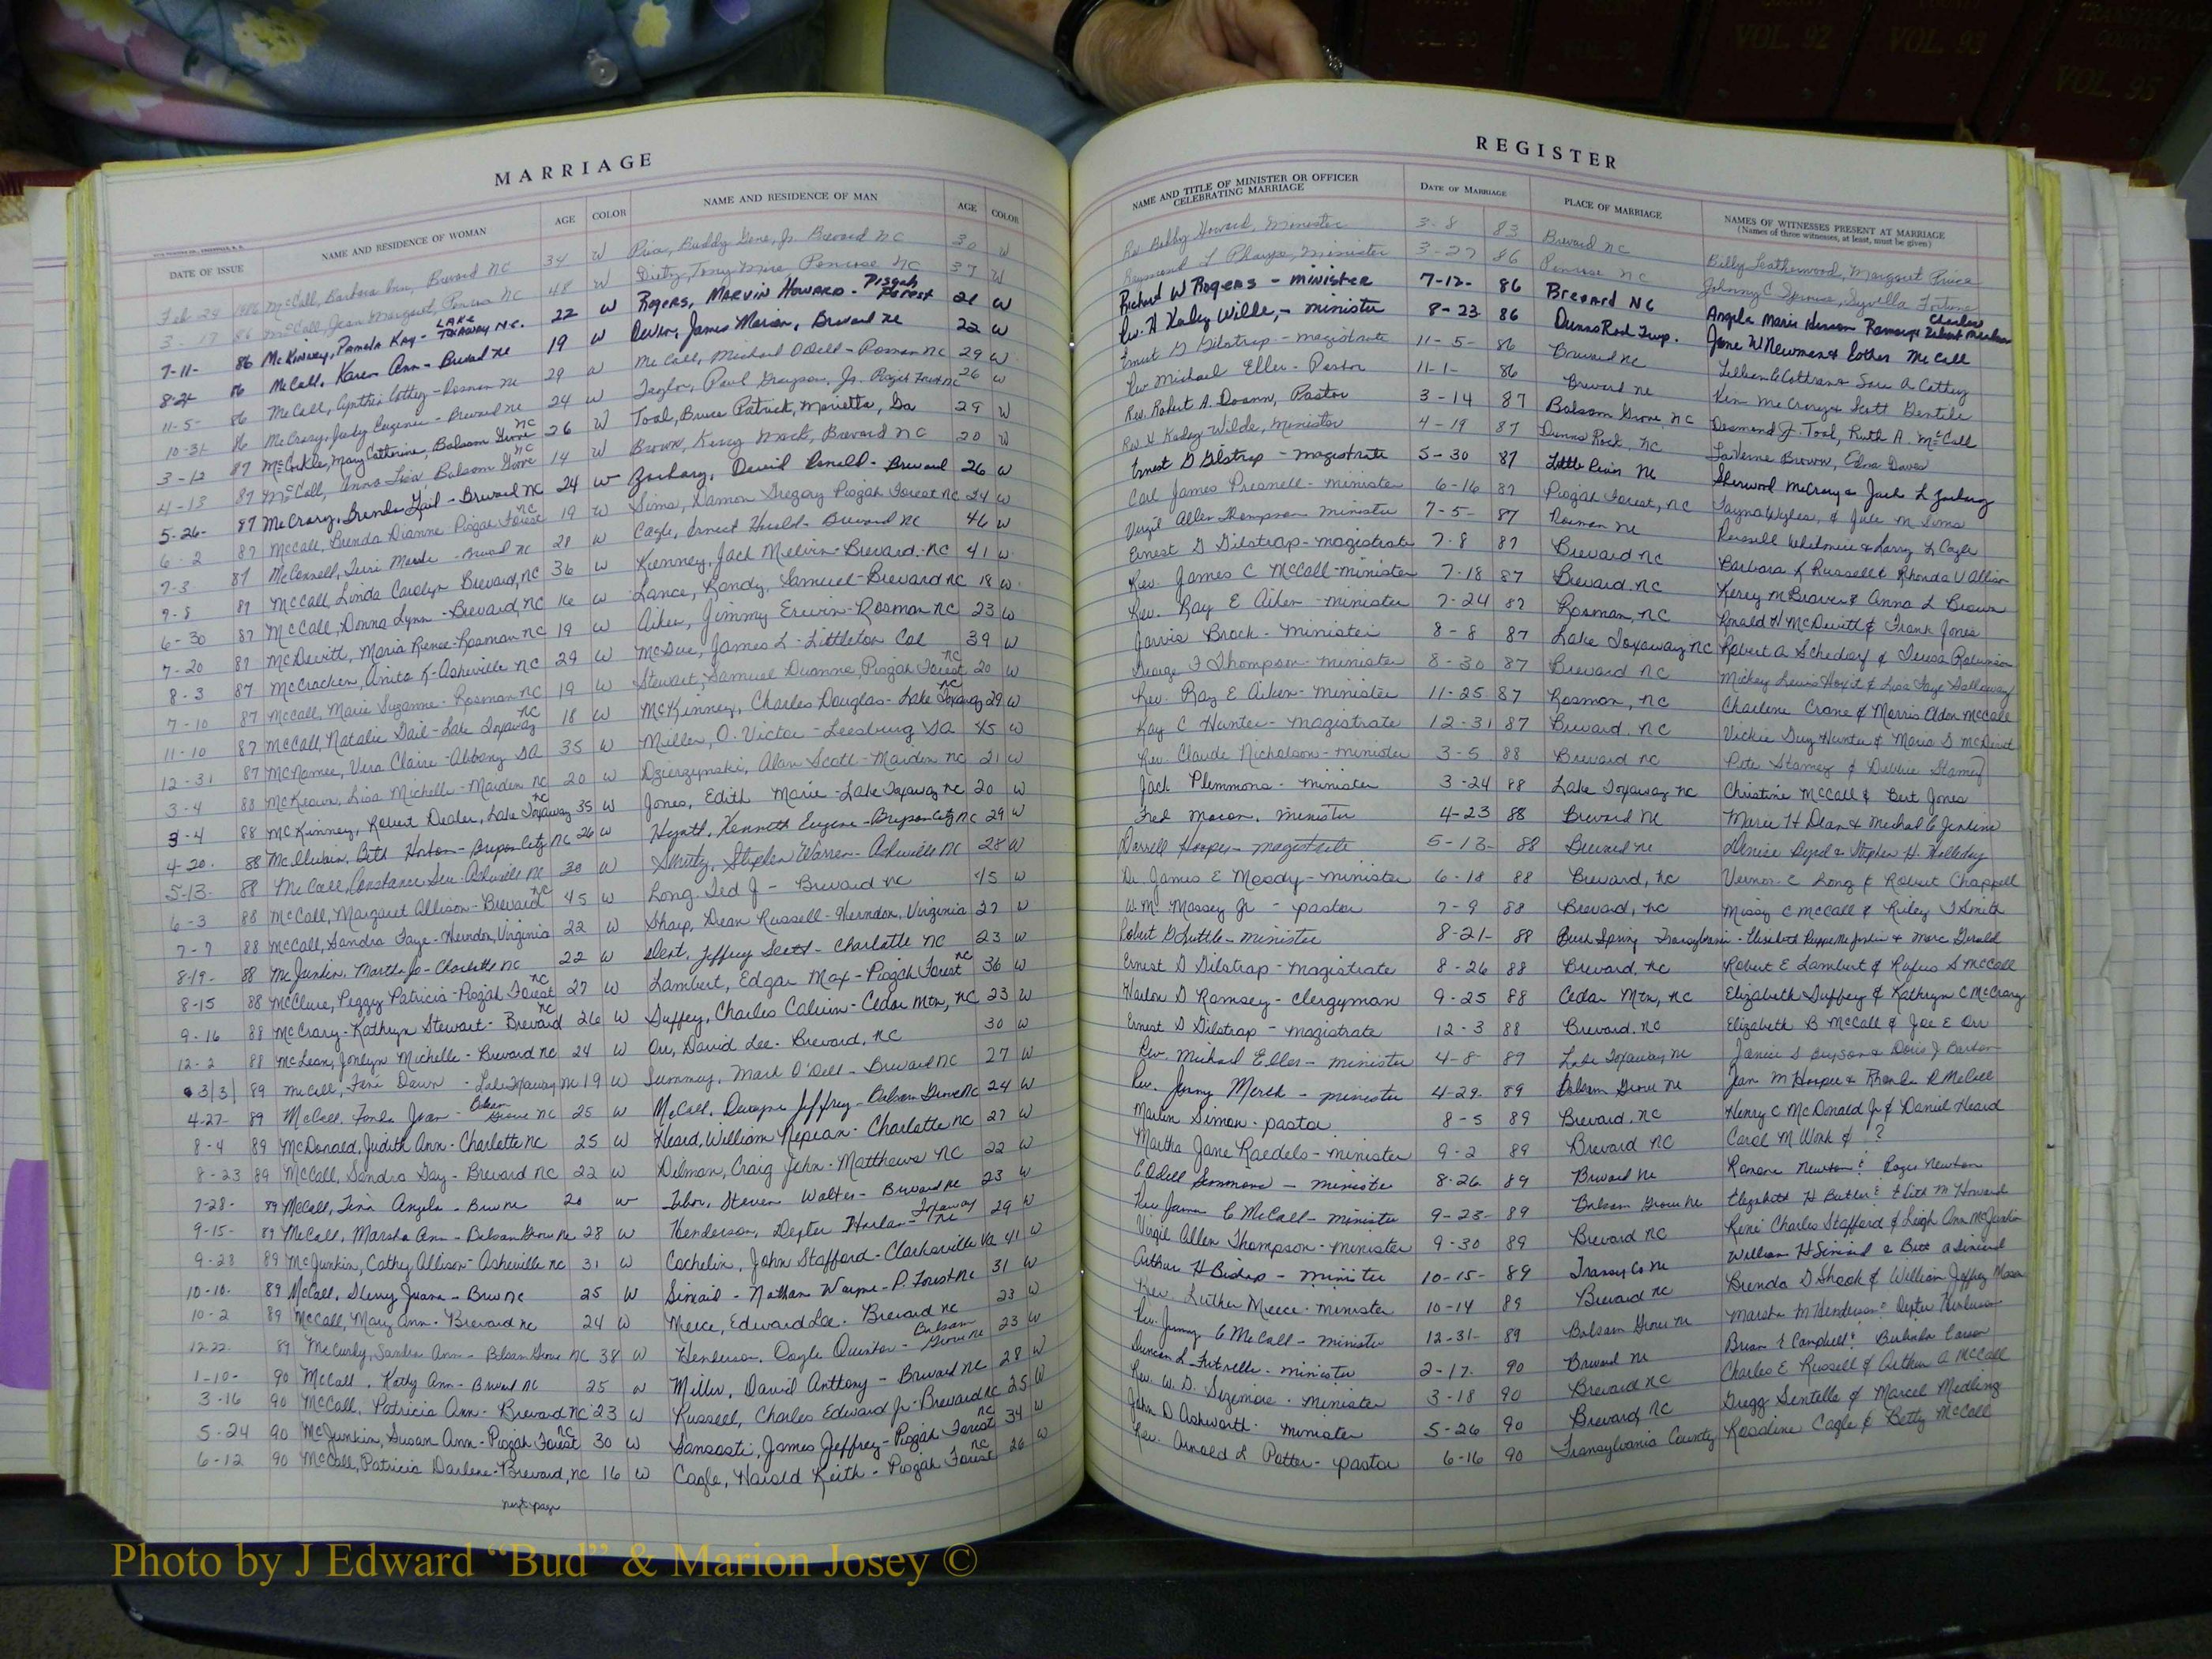 VOL. 90 VOL. 91 VOL. 92 VOL. 93 TRANSYLVANIA COUNTY VOL. 95
MARRIAGE
DATE OF ISSUE NAME AND RESIDENCE OF WOMAN AGE COLOR NAME AND RESIDENCE OF MAN AGE COLOR
Feb 24 1986 McCall, Barbara Ann, Brevard NC 34 W Price, Buddy Gene, Jr. Brevard NC 30 W
3-17 86 McCall, Jean Margaret, Penrose NC 48 W Penrose NC 37 W
7-11- 86 McKinney, Pamela Kay - LAKE TOXAWAY N.C. 22 W ROGERS, MARVIN HOWARD - Pisgah Forest 21 W
8-21 86 McCall, Karen Ann - Brevard NC 19 W Owen, James Marion, Brevard NC 22 W
11-5- 86 McCall, Cynthia Cathey - Rosman NC 29 W McCall, Michael Odell - Rosman NC 29 W
10-31 86 McCrary, Judy Eugenia - Brevard NC 24 W Taylor, Paul Grayson, Jr. Pisgah Forest NC 26 W
3-12 87 McCorkle, Mary Catherine, Balsam Grove NC 26 W Toal, Bruce Patrick, Marietta, Ga 29 W
4-13 87 McCall, Anna Lisa, Balsam Grove NC 14 W Brown, Kersey Mack, Brevard NC 20 W
5-26- 87 McCrary, Brenda Gail - Brevard NC 24 W Zachary, David Ronald - Brevard 26 W
6-2 87 McCall, Brenda Dianne Pisgah Forest NC 19 W Sims, Damon Gregory Pisgah Forest NC 24 W
7-3 87 McConnell, Terri - Brevard NC 28 W Cagle, Ernest Harold - Brevard NC 46 W
7-8 87 McCall, Linda Carolyn Brevard, NC 36 W Kienney, Jack Melvin - Brevard - NC 41 W
6-30 87 McCall, Donna Lynn - Brevard, NC 16 W Lance, Randy Samuel - Brevard NC 18 W
7-20 87 McDevitt, Maria Renee - Rosman NC 19 W Aiken, Jimmy Erwin - Rosman NC 23 W
8-3 87 McCracken, Anita K - Asheville NC 29 W James L - Littleton Col 39 W
7-10 87 McCall, Marie Suzanne - Rosman NC 19 W Stewart, Samuel Duanne Pisgah Forest NC 20 W
11-10 87 McCall, Natalie Gail - Lake Toxaway NC 18 W McKinney, Charles Douglas - Lake Toxaway NC 29 W
12-31 87 McNamee, Vera Claire - Albany GA 35 W Miller, O. Victor - Leesburg GA 45 W
3-4 88 McKeown, Lisa Michelle - Maiden NC 20 W Dzierzynski, Alan Scott - Maiden NC 21 W
3-4 88 McKinney, Robert Dealer, Lake Toxaway NC 35 W Jones, Edith Marie - Lake Toxaway NC 20 W
4-20- 88 McElwain, Beth Horton - Bryson City NC 26 W Hyatt, Kenneth Eugene - Bryson City NC 29 W
5-13- 88 McCall, Constance Sue - Asheville NC 30 W Stephen Warren - Asheville NC 28 W
6-3 88 McCall, Margaret Allison - Brevard NC 45 W Long, Ted J - Brevard NC 45 W
7-7 88 McCall, Sandra Faye - Herndon, Virginia 22 W Sharp, Dean Russell - Herndon, Virginia 27 W
8-19- 88 McJunkin, Martha Jo - Charlotte NC 22 W Dent, Jeffrey Scott - Charlotte NC 23 W
8-15 88 McClure, Peggy Patricia - Pisgah Forest NC 27 W Lambert, Edgar Max - Pisgah Forest NC 36 W
9-16 88 McCrary - Kathryn Stewart - Brevard NC 26 W Duffey, Charles Calvin - Cedar Mtn, NC 23 W
12-2 88 McLean, Jonlyn Michelle - Brevard NC 24 W Orr, David Lee - Brevard, NC 30 W
3/31 89 McCall, Dawn - Lake Toxaway NC 19 W Summey, Mark O'Dell - Brevard NC 27 W
4-27- 89 McCall, Fonda Jean - Balsam Grove NC 25 W McCall, Dwayne Jeffrey - Balsam Grove NC 24 W
8-4 89 McDonald, Judith Ann - Charlotte NC 25 W Heard, William Nepean - Charlotte NC 27 W
8-23 89 McCall, Sandra Gay - Brevard NC 22 W Dilman, Craig John - Matthews NC 22 W
7-28- 89 McCall, Tina Angela - Brev NC 20 W Steven Walter - Brevard NC 23 W
9-15- 89 McCall, Marsha Ann - Balsam Grove NC 28 W Henderson, Dexter Harlan - Toxaway NC 29 W
9-28 89 McJunkin, Cathey Allison - Asheville NC 31 W Cochelin, John Stafford - Clarksville Va 41 W
10-10- 89 McCall, Sherry Juana - Brev NC 25 W Siniard - Nathan Wayne - P. Forest NC 31 W
10-2 89 McCall, Mary Ann - Brevard NC 24 W Meece, Edward Lee - Brevard NC 23 W
12-22- 89 McCurly, Sandra Ann - Balsam Grove NC 38 W Henderson, Doyle Quinton - Balsam Grove NC 23 W
1-10- 90 McCall, Kathy Ann - Brevard NC 25 W Miller, David Anthony - Brevard NC 28 W
3-16 90 McCall, Patricia Ann - Brevard NC 23 W Russell, Charles Edward Jr - Brevard NC 25 W
5-24 90 McJunkin, Susan Ann - Pisgah Forest NC 30 W Sansosti, James Jeffrey - Pisgah Forest NC 34 W
6-12 90 McCall, Patricia Darlene - Brevard, NC 16 W Cagle, Harold Keith - Pisgah Forest NC 26 W
next page
REGISTER
NAME AND TITLE OF MINISTER OR OFFICER CELEBRATING MARRIAGE DATE OF MARRIAGE PLACE OF MARRIAGE NAMES OF WITNESSES PRESENT AT MARRIAGE
(Names of three witnesses, at least, must be given)
Rev Bobby Howard, Minister 3-8 83 Brevard NC Billy Leatherwood, Margaret Price
Raymond L Minister 3-27 86 Penrose NC Johnny C Sprouse, Syvella Fortune
Richard W Rogers - minister 7-12- 86 Brevard NC Angela Marie Henson Ramsey & Charles Robert
Rev. H Kasley Wilde, - minister 8-23 86 Dunns Rock Twp. Jane W Newman & Esther McCall
Ernest D Gilstrap - magistrate 11-5- 86 Brevard NC Lillian C Cothran & Sara A Cathey
Rev Michael Eller - Pastor 11-1- 86 Brevard NC Ken McCrary & Scott Gentile
Rev. Robert A. Doann, Pastor 3-14 87 Balsam Grove, NC Desmond J. Toal, Ruth A. McCall
Rev H Kasley Wilde, Minister 4-19 87 Dunns Rock, NC LaVerne Brown, Edna Davis
Ernest D Gilstrap - Magistrate 5-30 87 Little River NC Sherwood McCrary & Jack L Zachary
Carl James Presnell - minister 6-16 87 Pisgah Forest, NC Wyles, & Julie M Sims
Virgil Allen Thompson minister 7-5- 87 Rosman NC Russell Whitmire & Larry L Cagle
Ernest D Gilstrap - magistrate 7-8 87 Brevard NC Barbara K Russell & Rhonda V Allison
Rev. James C McCall - minister 7-18 87 Brevard NC Anna L Brown
Rev. Ray E Aiken - minister 7-24 87 Rosman, NC Ronald H McDevitt & Frank Jones
Jarvis Brock - minister 8-8 87 Lake Toxaway NC Robert A & Teresa Robinson
George F Thompson - minister 8-30 87 Brevard NC Mickey Lewis Hoxit & Lisa Faye Galloway
Rev. Ray E Aiken - minister 11-25 87 Rosman, NC Charlene Crane & Morris Alden McCall
Kay C Hunter - magistrate 12-31 87 Brevard, NC Vickie Hunter & Maria S
Rev. Claude Nicholson - minister 3-5 88 Brevard NC Pete Stamey & Debbie Stamey
Jack Plemmons - minister 3-24 88 Lake Toxaway NC Christine McCall & Bert Jones
Fred Macon, minister 4-23 88 Brevard NC Marie H Dean & Michal C Jenkins
Darrell Hooper - magistrate 5-13- 88 Brevard NC Denise Byrd & Stephen H. Holliday
Dr. James E Moody - minister 6-18 88 Brevard, NC Vernon C Long & Robert Chappell
W. M. Massey Jr - pastor 7-9 88 Brevard, NC Missy C McCall & Riley J Smith
Robert D Suttle - minister 8-21- 88 Spring Transylvania - Elizabeth McJunkin & Marc Gerald
Ernest D Gilstrap - Magistrate 8-26 88 Brevard, NC Robert E Lambert & Rufus S McCall
Harlon D Ramsey - clergyman 9-25 88 Cedar Mtn, NC Elizabeth Duffey & Kathryn C McCrary
Ernest D Gilstrap - magistrate 12-3 88 Brevard, NC Elizabeth B McCall & Joe E Orr
Rev. Michael Eller - minister 4-8- 89 Lake Toxaway, NC Janice S Bryson & Doris J Barton
Rev. Jimmy - minister 4-29- 89 Balsam Grove NC Jean M Hooper & Rhonda R McCall
Marlin Simon - pastor 8-5 89 Brevard, NC Henry C McDonald Jr & Daniel Heard
Martha Jane Raedels - minister 9-2 89 Brevard NC Carol M Work & ?
C Odell Simmons - minister 8-26 89 Brevard NC Ramona Newton & Roger Newton
Rev James C McCall - minister 9-23- 89 Balsam Grove NC Elizabeth H Butler & Edith M Howard
Virgil Allen Thompson - minister 9-30 89 Brevard NC René Charles Stafford & Leigh Ann McJunkin
Arthur H Bishop - minister 10-15- 89 Transy Co NC William H Siniard & Bett A Siniard
Rev. Luther Meece - minister 10-14 89 Brevard NC Brenda D Shook & William Jeffrey Mason
Rev. Jimmy C McCall - minister 12-31- 89 Balsam Grove NC Marsha M Henderson & Dexter Henderson
Duncan L Futrelle - minister 2-17- 90 Brevard NC Brian E Campbell & Belinda
Rev. W. D. Sizemore - minister 3-18 90 Brevard NC Charles E Russell & Arthur A McCall
John D Ashworth - minister 5-26 90 Brevard, NC Gregg Sentelle & Marcel Medling
Rev. Arnold L Potter - pastor 6-16 90 Transylvania County Rosaline Cagle & Betty McCall
Photo by J Edward “Bud” & Marion Josey ©